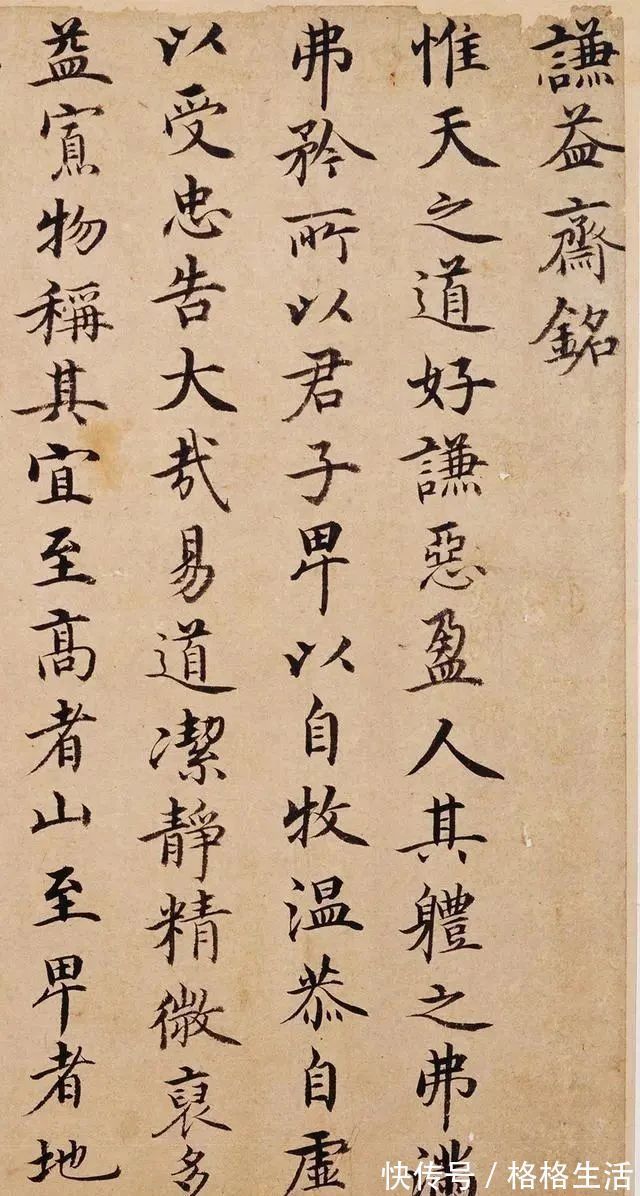 謙益齋銘
惟天之道好謙惡盈人其體之弗滿
弗矜所以君子卑以自牧温恭自虛
以受忠告大哉易道潔靜精微裒多
益寡物稱其宜至高者山至卑者地
快传号/格格生活